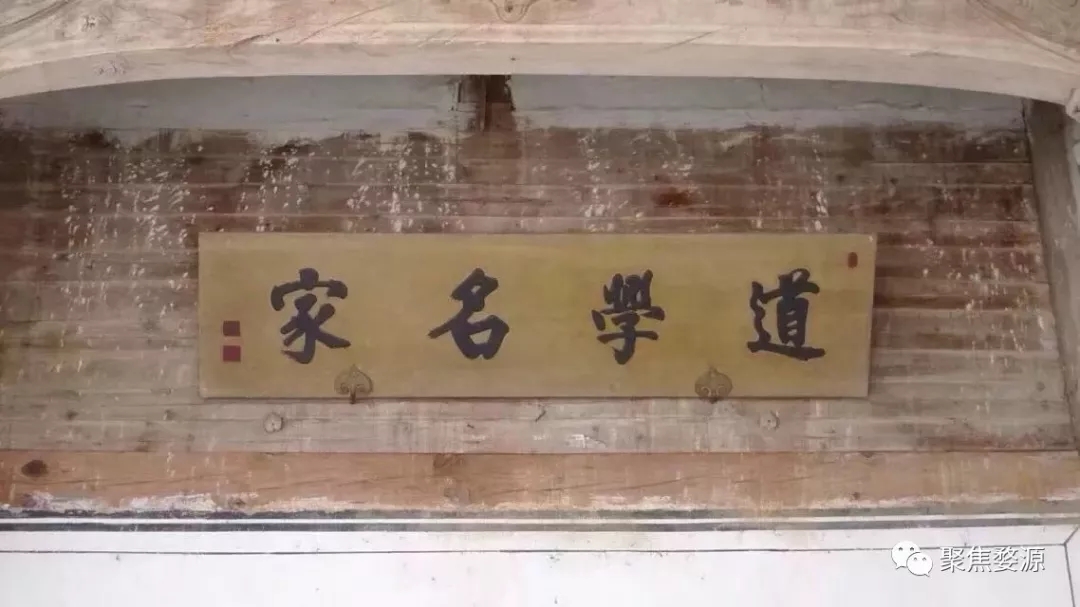 道學名家
聚焦婺源